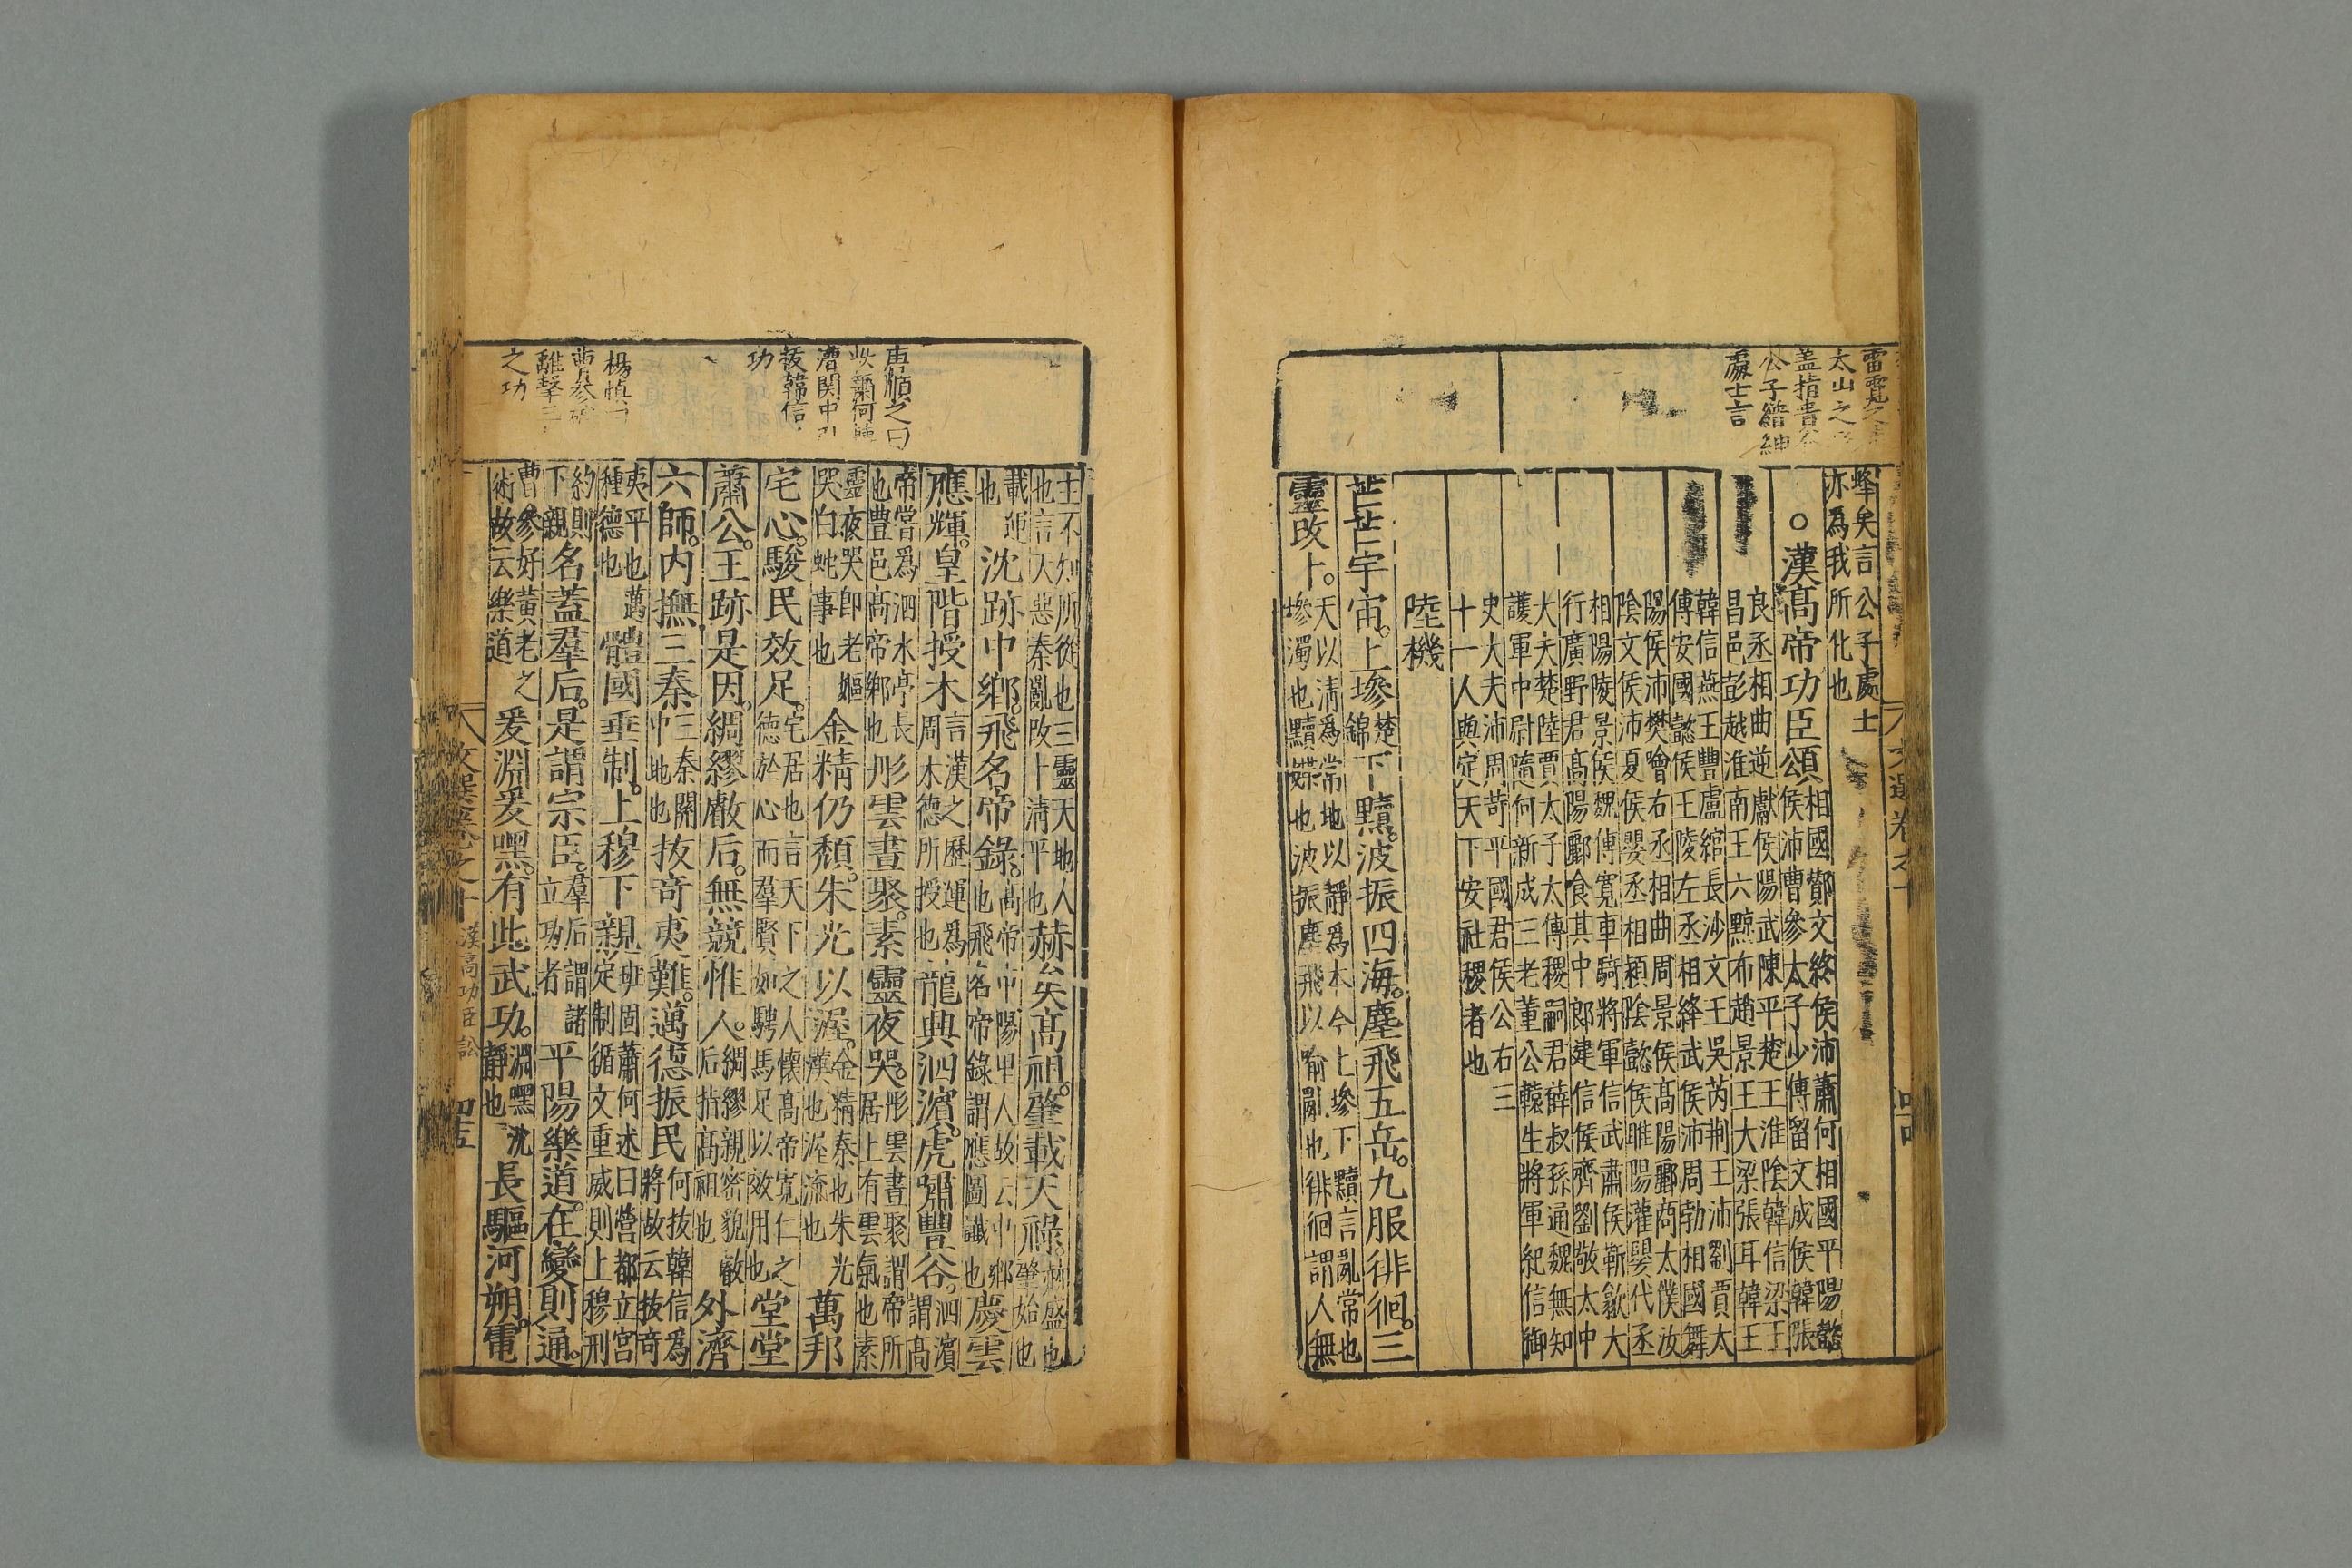 太山之
公子縉紳
處士言
蜂矣言公子處士
亦為我所化也
○漢高帝功臣頌
相國酇文終侯沛蕭何相國平陽懿
侯沛曹參太子少傅留文成侯韓張
良丞相曲逆獻侯陽武陳平楚王淮陰韓信梁王
昌邑彭越淮南王六黥布趙景王大梁張耳韓王
韓信燕王豐盧綰長沙文王吳芮荆王沛劉賈太
傅安國懿侯王陵左丞相絳武侯沛周勃相國舞
陽侯沛樊噲右丞相曲周景侯高陽酈商太僕汝
陰文侯沛夏侯嬰丞相潁陰懿侯睢陽灌嬰代丞
相陽陵景侯魏傅寬車騎將軍信武肅侯靳歙大
行廣野君高陽酈食其中郎建信侯齊劉敬太中
大夫楚陸賈太子太傅稷嗣君薛叔孫通魏無知
護軍中尉隨何新成三老董公轅生將軍紀信御
史大夫沛周苛平國君侯公右三
十一人與定天下安社稷者也
陸機
芒芒宇宙。上墋楚錦下黷。波振四海。塵飛五岳。九服徘徊。三
靈改卜。
天以清為常地以靜為本今上墋下黷言亂常也
墋濁也黷媟也波振塵飛以喻亂也徘徊謂人無
主不知所從也三靈天地人
也言天惡秦亂改卜清平也
赫矣高祖。肇載天祿。
赫盛也肇始也
載運也
沈跡中鄉。飛名帝錄。
高帝中陽里人故云中鄉
也飛名帝錄謂應圖讖也
慶雲
應輝。皇階授木
言漢之歷運為
周木德所授也
龍興泗濱。虎嘯豐谷。
泗濱謂高
帝嘗為泗水亭長
也豐邑高帝鄉也
彤雲晝聚。素靈夜哭。
彤雲晝聚謂帝所
居上有雲氣也素
靈夜哭即老嫗
哭白蛇事也
金精仍頹。朱光以渥。
金精秦也朱光
漢也渥流也
萬邦
宅心。駿民效足。
宅居也言天下之人懷高帝寬仁之
德於心而羣賢如騁馬足以效用也
堂堂
蕭公。王跡是因。綢繆叡后。無競惟人。
綢繆親密貌叡
后指高祖也
外濟
六師。內撫三秦
三秦關
中地也
拔奇夷難。邁德振民
何拔韓信為
將故云拔奇
夷平也邁
種德也
體國垂制。上穆下親
班固蕭何述曰營都立宮
定制循文重威則上穆刑
約則
下親
名蓋羣后。是謂宗臣。
羣后謂諸
立功者
平陽樂道。在變則通。
曹參好黃老之
術故云樂道
爰淵爰嘿。有此武功。
淵嘿沈
靜也
長驅河朔。電
之功
功
漢高功臣訟